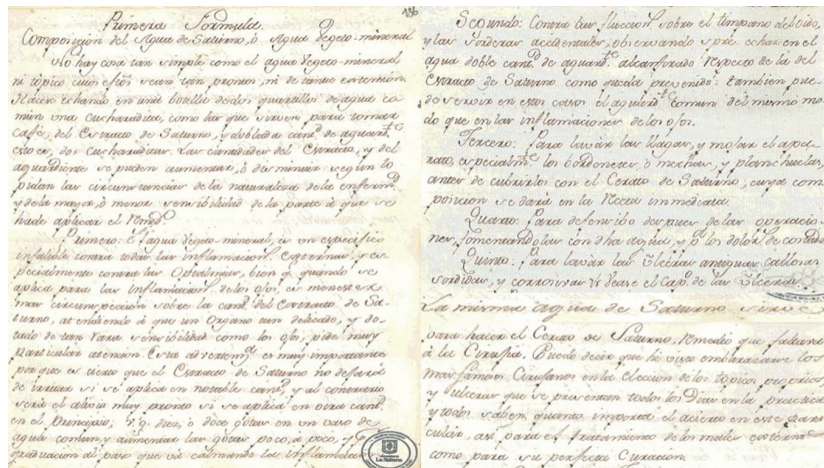 196
Primera Formula.
Composicion del Agua de Saturno, ò Agua Vegeto-mineral
No hay cosa tan simple como el agua Vegeto-mineral,
ni topico cuios efectos sean tan prontos, ni de tanta extention.
Hacese echando en una botella de dos quartillos de agua co
mun una cucharadita, como las que sirven para tomar
café, del Extracto de Saturno, y doblada cantd. de aguardte
esto es, dos cucharaditas. Las cantidades del Extracto, y del
aguardiente se pueden aumentar, ò disminuir segun lo
pidan las circunstancias de la naturaleza de la enfermd.
y de la mayor, ò menor sensibilidad de la parte à que se
haia de aplicar el Remedo.
Primero: El agua Vegeto-mineral, es un especifico
infalible contra todas las inflamacions. Externas, y es
pecialmente contra las Optalmias, bien q. quando se
aplica para las inflamacions. de los ojos, es menester ma
mas circunspeccion sobre la cantd. del Extracto de Sa-
turno, atendiendo à que un Organo tan delicado, y do-
tado de tan rara sensibilidad como los ojos, pide muy
particular atencion. Esta advertens. es muy importante
porque es cierto que el Extracto de Saturno no dejarà
de irritar si se aplica en notable cantd. y al contrario
serà el alivio muy pronto si se aplica en corta cantd.
en el principio; v. g. diez, ò doce gotas en un vaso de
agua comun, y aumentar las gotas poco, à poco, y
graduacion al paso que và calmando la inflamacion
Segundo: Contra las fluccions. sobre el timpano del oido,
y las sorderas accidentales, observando spre. echar en el
agua doble cantd. de aguardte. alcanforado respecto de la del
Extracto de Saturno como queda prevenido: tambien pue-
de servir en estos casos el aguardte. comun del mismo mo
do que en las inflamaciones de los ojos.
Tercero: Para lavar las llagas, y mojar el apa-
rato, especialmte. los bordonetes, ò mechas, y planchuelas,
antes de cubrirlos con el Cerato de Saturno, cuya com
posicion se darà en la Receta inmediata.
Quarto: Para defensibo despues de las operacio-
nes, fomentandolas con dha agua, y pa. los dolores de costado
Quinto: Para lavar las Ulceras antiguas callosas
sordidas, y corrosivas vease el Capo. de las Ulceras.
La misma agua de Saturno sirve
para hacer el Cerato de Saturno, remedio que
à la Cirugia. Puedo decir que he visto embarazarse los
mas famosos Cirujanos en la eleccion de los topicos propios
y ulceras que se presentan todos los Dias en la practica
y todos saben quanto importa el acierto en este parti
cular, asi para el tratamiento de los males externos
como para su perfecta Curacion.